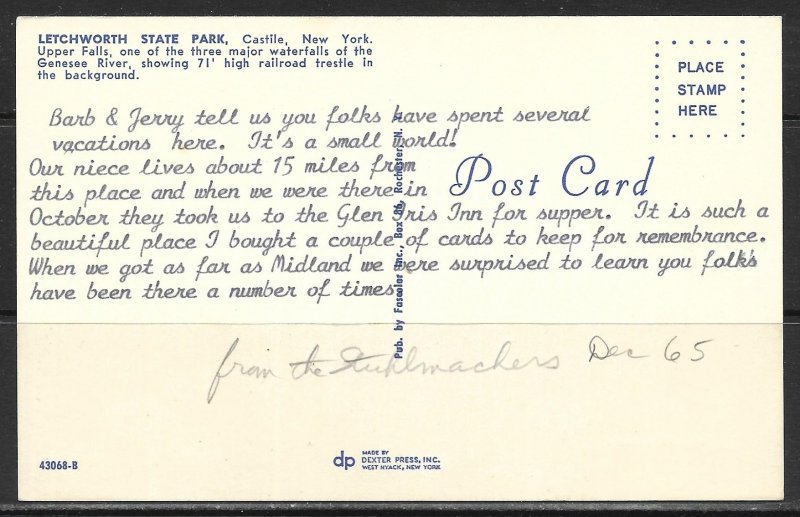 LETCHWORTH STATE PARK, Castile, New York.
Upper Falls, one of the three major waterfalls of the
Genesee River, showing 71' high railroad trestle in
the background.
PLACE
STAMP
HERE
Barb & Jerry tell us you folks have spent several
vacations here. It's a small world!
Our niece lives about 15 miles from
this place and when we were there in
Post Card
October they took us to the Glen Iris Inn for supper. It is such a
beautiful place I bought a couple of cards to keep for remembrance.
When we got as far as Midland we were surprised to learn you folks
have been there a number of times.
Pub. by Fascolor Inc., Box 86, Rochester, N.Y.
from the Stuhlmachers Dec 65
43068-B
dp
MADE BY
DEXTER PRESS, INC.
WEST NYACK, NEW YORK